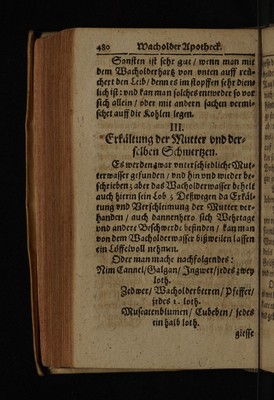 480 Wacholder Apotheck.
Sonsten ist sehr gut / wenn man mit
dem Wacholderhartz von unten auff reu-
chert den Leib / denn es im stopffen sehr dien-
lich ist: und kan man solches entweder so vor
sich allein / oder mit andern sachen vermi-
schet auff die Kohlen legen.
III.
Erkältung der Mutter vnd der-
selben Schmertzen.
Es werden zwar unterschiedliche Mut-
terwasser gefunden / und hin und wieder be-
schrieben; aber das Wacholderwasser behelt
auch hierin sein Lob; Deßwegen da Erkäl-
tung und Verschleimung der Mutter ver-
handen / auch dannenhero sich Wehetage
und andere Beschwerde befinden / kan man
von dem Wacholderwasser bißweilen lassen
ein Löffelvoll nehmen.
Oder man mache nachfolgendes:
Nim Cannel / Galgan / Ingwer / jedes zwey
loth.
Zedwer / Wacholderbeeren / Pfeffer /
jedes 1. loth.
Muscatenblumen / Cubeben / jedes
ein halb loth.
giesse